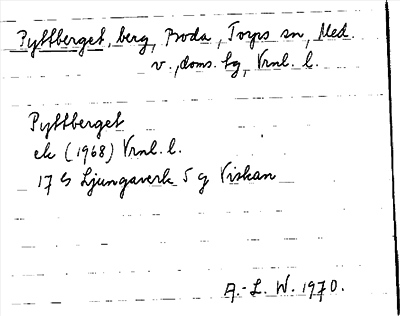 Pyttberget, berg, Boda, Torps sn, Med.
v., doms. fg, Vrnl. l.
Pyttberget
ek (1968) Vrnl. l.
17 G Ljungaverk 5 g Viskan
A.-L. W. 1970.